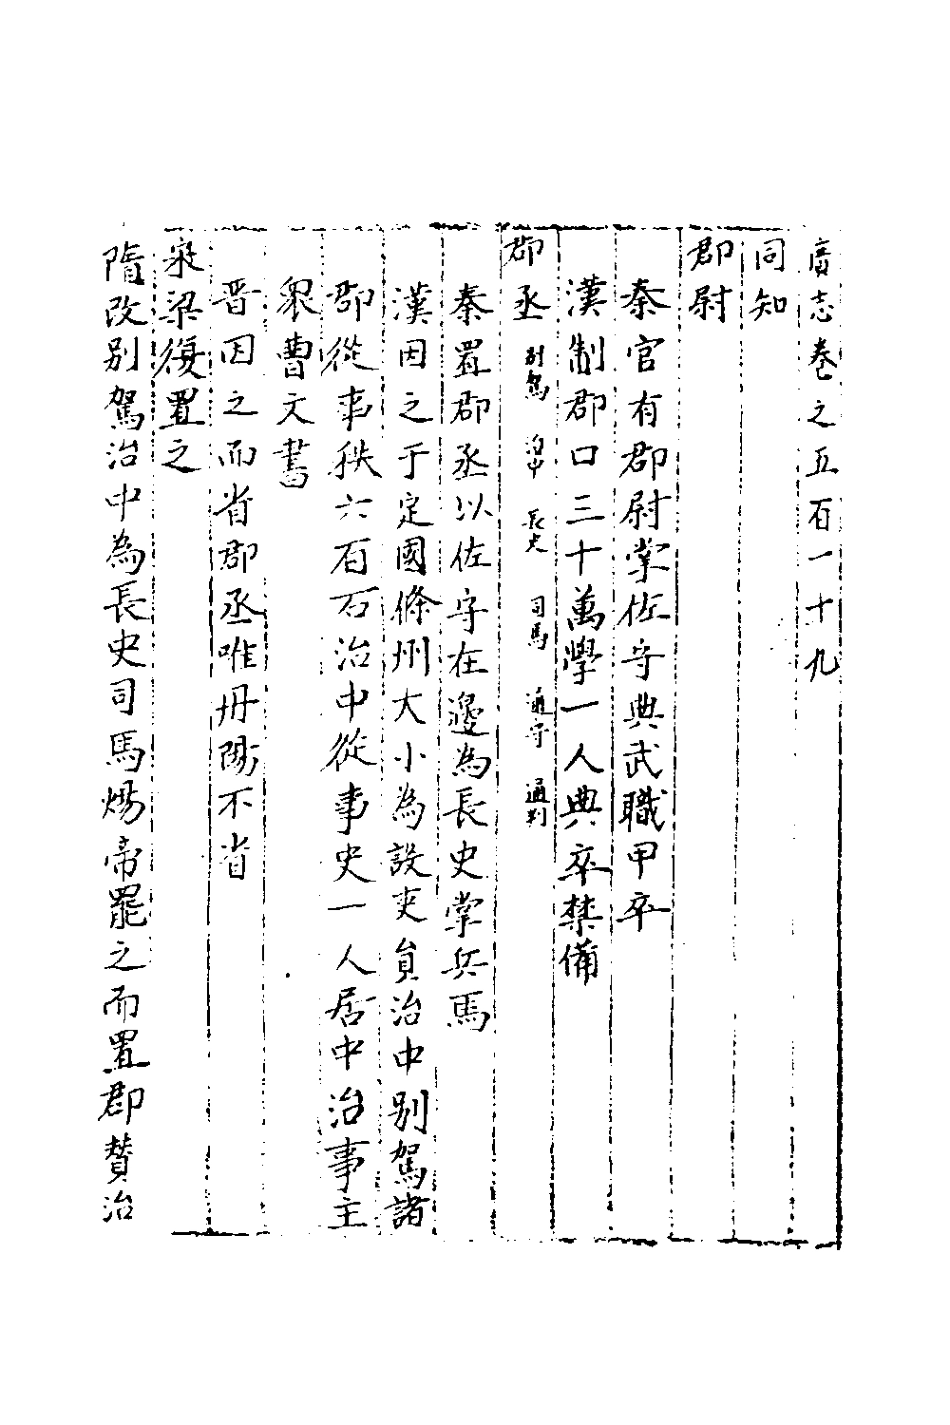 廣志卷之五百一十九
同知
郡尉
秦官有郡尉掌佐守典武職甲卒
漢制郡口三十萬學一人典卒禁備
郡丞 别駕 治中 長史 司馬 通守 通判
秦置郡丞以佐守在邊為長史掌兵馬
漢因之于定國條州大小為設吏員治中别駕諸
郡從事秩六百石治中從事史一人居中治事主
衆曹文書
晋因之而省郡丞唯丹陽不省
宋梁復置之
隋改别駕治中為長史司馬煬帝罷之而置郡賛治